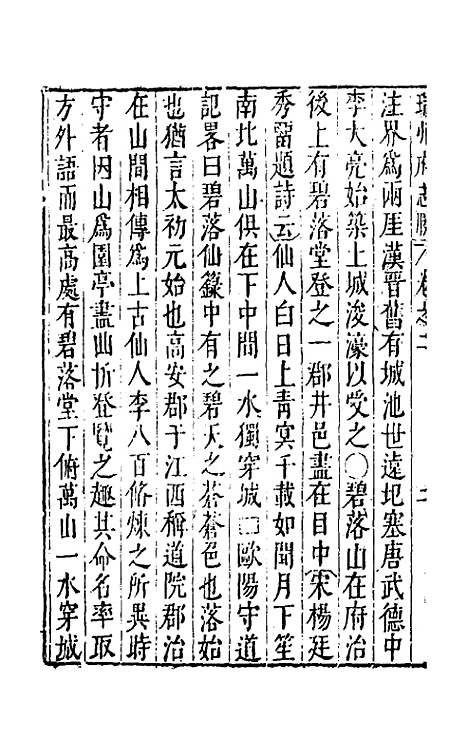 瑞州府志勝 卷之二 二
注界爲兩厓漢晉舊有城池世遠圮塞唐武德中
李大亮始築上城浚濠以受之〇碧落山在府治
後上有碧落堂登之一郡井邑盡在目中宋楊廷
秀畱題詩云仙人白日上青冥千載如聞月下笙
南北萬山俱在下中間一水獨穿城□歐陽守道
記畧曰碧落仙籙中有之碧天之蒼蒼色也落始
也猶言太初元始也高安郡于江西稱道院郡治
在山間相傳爲上古仙人李八百脩煉之所異時
守者因山爲園亭盡曲折登覽之趣其命名率取
方外語而最高處有碧落堂下俯萬山一水穿城